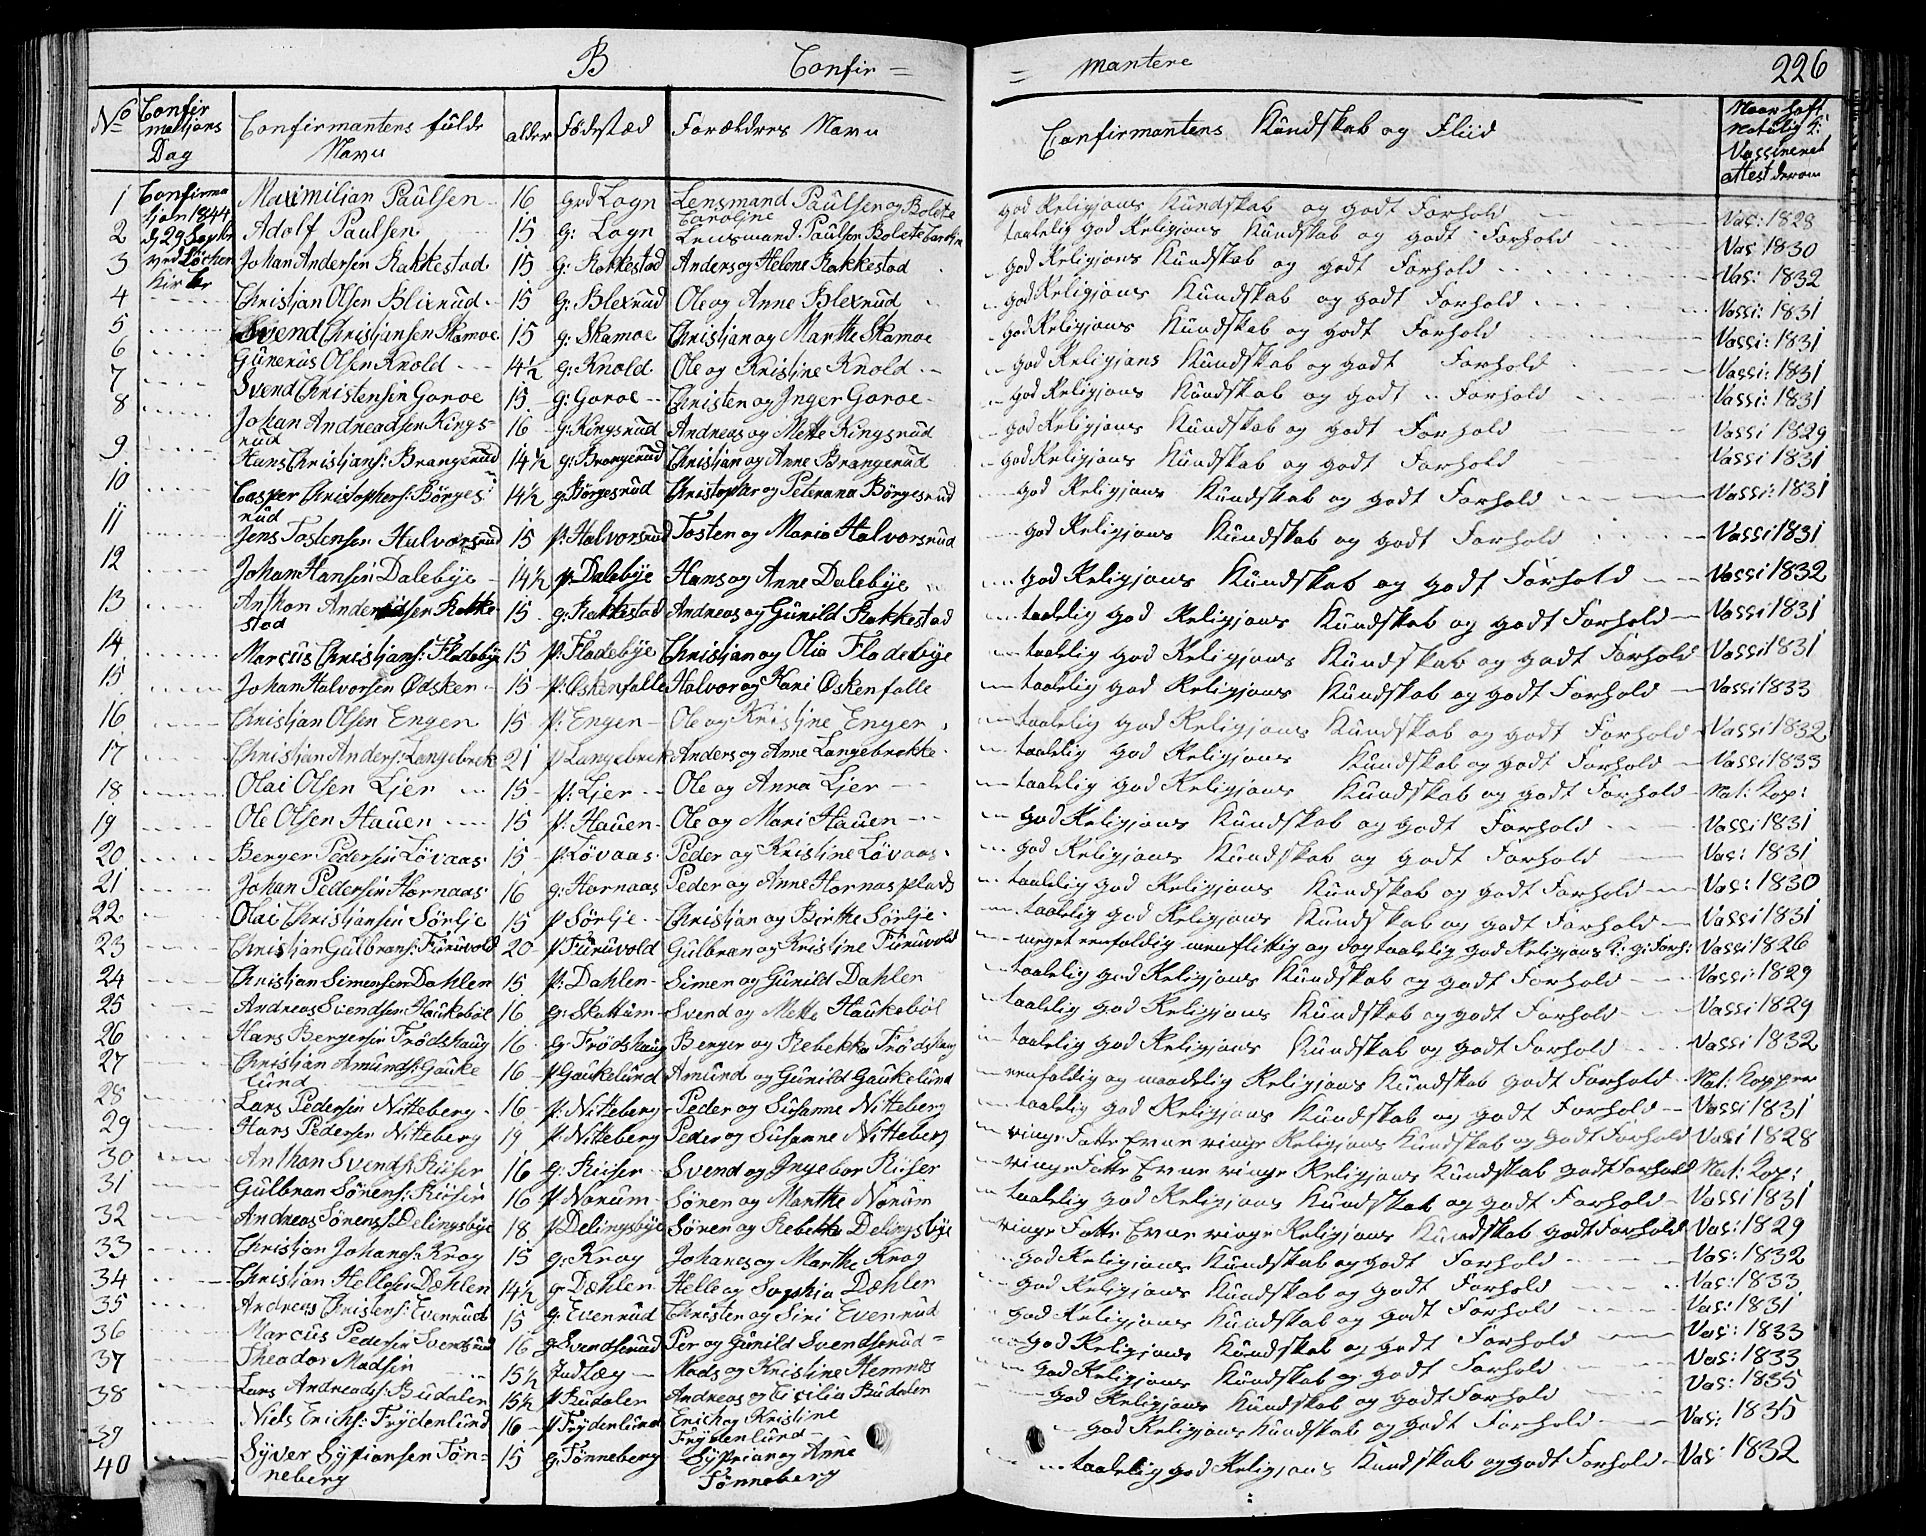 B Confir = = mantere 226
No Confirmatjons Dag Confirmantens fulde Navn alder Fødestæd Forældres Navn Confirmantens Kundskab og Fliid Naar haft Natulig K: Vassineret Attest derom
1 Confirmatjon 1844 Maximilian Paulsen 16 grd Logn Lensmand Paulsen og Bolete Caroline god Religjons Kundskab og godt Forhold Vas: 1828
2 d 29 Septbr Adolf Paulsen 15 g: Logn Lensmand Paulsen Bolete taalelig god Religjons Kundskab og godt Forhold Vas 1830
3 ved Kirke Johan Andersen Rakkestad 15 g: Rakkestad Anders og Helene Rakkestad god Religjons Kundskab og godt Forhold Vas: 1832
4 Christjan Olsen Blixrud 15 g: Blexrud Ole og Anne Blexrud god Religjons Kundskab og godt Forhold Vassi: 1831
5 Svend Christjansen Skamoe 15 g: Skamoe Christjan og Marthe Skamoe god Religjons Kundskab og godt Forhold Vassi: 1831
6 Gunerus Olsen Knold 14½ g: Knold Ole og Kristine Knold god Religjons Kundskab og godt Forhold Vassi: 1831
7 Svend Christensen Goroe 15 g: Goroe Christen og Inger Goroe god Religjons Kundskab og godt Forhold Vassi: 1831
8 Johan Andreadsen Kingsrud 16 g: Kingsrud Andreas og Mette Kingsrud god Religjons Kundskab og godt Forhold Vassi 1829
9 Hans Christjans: Brangerud 14½ g: Brangerud Christjan og Anne Brangerud god Religjons Kundskab og godt Forhold Vassi 1831
10 Casper Christophers: Børgesrud 14½ g: Børgesrud Christopher og Peternna Børgesrud god Religjons Kundskab og godt Forhold Vassi: 1831
11 Jens Tostensen Halvorsrud 15 p: Halvorsrud Tosten og Maria Halvorsrud god Religjons Kundskab og godt Forhold Vassi 1831
12 Johan Hansen Dalebye 14½ p: Dalebye Hans og Anne Dalebye god Religjons Kundskab og godt Forhold Vassi 1832
13 Anthon Andersen Rakkestad 15 g: Rakkestad Andreas og Gunild Rakkestad taalelig god Religjons Kundskab og godt Forhold Vassi 1831
14 Marcus Christjans: Fladebye 15 p: Fladebye Christjan og Olia Fladebye taalelig god Religjons Kundskab og godt Forhold Vassi 1831
15 Johan Halvorsen Ødsken 15 p: Øskenfalle Halvor og Kari Øskenfalle taalelig god Religjons Kundskab og godt Forhold Vassi 1833
16 Christjan Olsen Engen 15 p: Engen Ole og Kristine Enger taalelig god Religjons Kundskab og godt Forhold Vassi 1832
17 Christjan Anders: Langebrek 21 p Langebrek Anders og Anne Langebrekke taalelig god Religjons Kundskab og godt Forhold Vassi 1833
18 Olai Olsen Lier 15 p: Lier Ole og Anna Lier taalelig god Religjons Kundskab og godt Forhold Nat: Kop:
19 Ole Olsen Hauen 15 p: Hauen Ole og Mari Hauen god Religjons Kundskab og godt Forhold Vassi 1831
20 Berger Pedersen Løvaas 15 p: Løvaas Peder og Kristine Løvaas god Religjons Kundskab og godt Forhold Vas: 1831
21 Johan Pedersen Hornaas 16 g: Hornaas Peder og Anne Hornas plads taalelig god Religjons Kundskab og godt Forhold Vas: 1830
22 Olai Christjansen Sørlje 15 p Sørlje Christjan og Birthe Sørlje taalelig god Religjons Kundskab og godt Forhold Vassi 1831
23 Christjan Gulbrans: Furuvold 20 p Furuvold Gulbran og Kristine Furuvold meget eenfoldig men flittig og dog taalelig god Religjons K: g: Forh: Vassi 1826
24 Christjan Simensen Dahlen 15 p: Dahlen Simen og Gunild Dahlen taalelig god Religjons Kundskab og godt Forhold Vassi 1829
25 Andreas Svendsen Haukebøl 16 g: Skottum Svend og Mette Haukebøl taalelig god Religjons Kundskab og godt Forhold Vassi 1829
26 Hans Bergersen Frødshaug 16 g: Frødshaug Berger og Rebekka Frødshaug taalelig god Religjons Kundskab og godt Forhold Vassi 1832
27 Christjan Amunds: Gaukelund 16 p Gaukelund Amund og Gunild Gaukelund eenfoldig og maadelig Religjons Kundskab godt Forhold Nat: Kopper
28 Lars Pedersen Nitteberg 16 p: Nitteberg Peder og Susanne Nitteberg taalelig god Religjons Kundskab og godt Forhold Vassi 1831
29 Hans Pedersen Nitteberg 19 p: Nitteberg Peder og Susanne Nitteberg ringe Fatte Evne ringe Religjons Kundskab og godt Forhold Vasi 1828
30 Anthon Svends: Riiser 16 g: Riiser Svend og Ingebor Riiser ringe Fatte Evne ringe Religjons Kundskab godt Forhold Nat: Kop:
31 Gulbran Sørens: Riiser 16 p Norum Søren og Marthe Norum taalelig god Religjons Kundskab og godt Forhold Vassi 1831
32 Andreas Sørens: Delingsbye 18 p Delingsbye Søren og Rebekka Delingsbye ringe Fatte Evne ringe Religjons Kundskab godt Forhold Vas: 1829
33 Christjan Johans: Krog 15 g: Krog Johanes og Marthe Krog god Religjons Kundskab og godt Forhold Vas: 1832
34 Christjan Hellesen Dæhlen 14½ g Dæhlen Helle og Sophia Dæhlen god Religjons Kundskab og godt Forhold Vas: 1833
35 Andreas Christens: Evenrud 15 g: Evenrud Christen og Siri Evenrud god Religjons Kundskab og godt Forhold Vas: 1831
36 Marcus Pedersen Svendsrud 16 g Svendserud Per og Gunild Svendserud god Religjons Kundskab og godt Forhold Vas: 1833
37 Theodor Madsen 15½ Mads og Kristine Hemnes god Religjons Kundskab og godt Forhold Vas: 1833
38 Lars Andreads: Budalen 15½ p Budalen Andreas og Cicilia Budalen god Religjons Kundskab og godt Forhold Vas: 1835
39 Niels Erichs: Frydenlund 16 p Frydenlund Erich og Kristine Frydenlund god Religjons Kundskab og godt Forhold Vas: 1835
40 Syver Sypriansen Tønneberg 15 g: Tønneberg Syprian og Anne Tønneberg taalelig god Religjons Kundskab og godt Forhold Vas: 1832